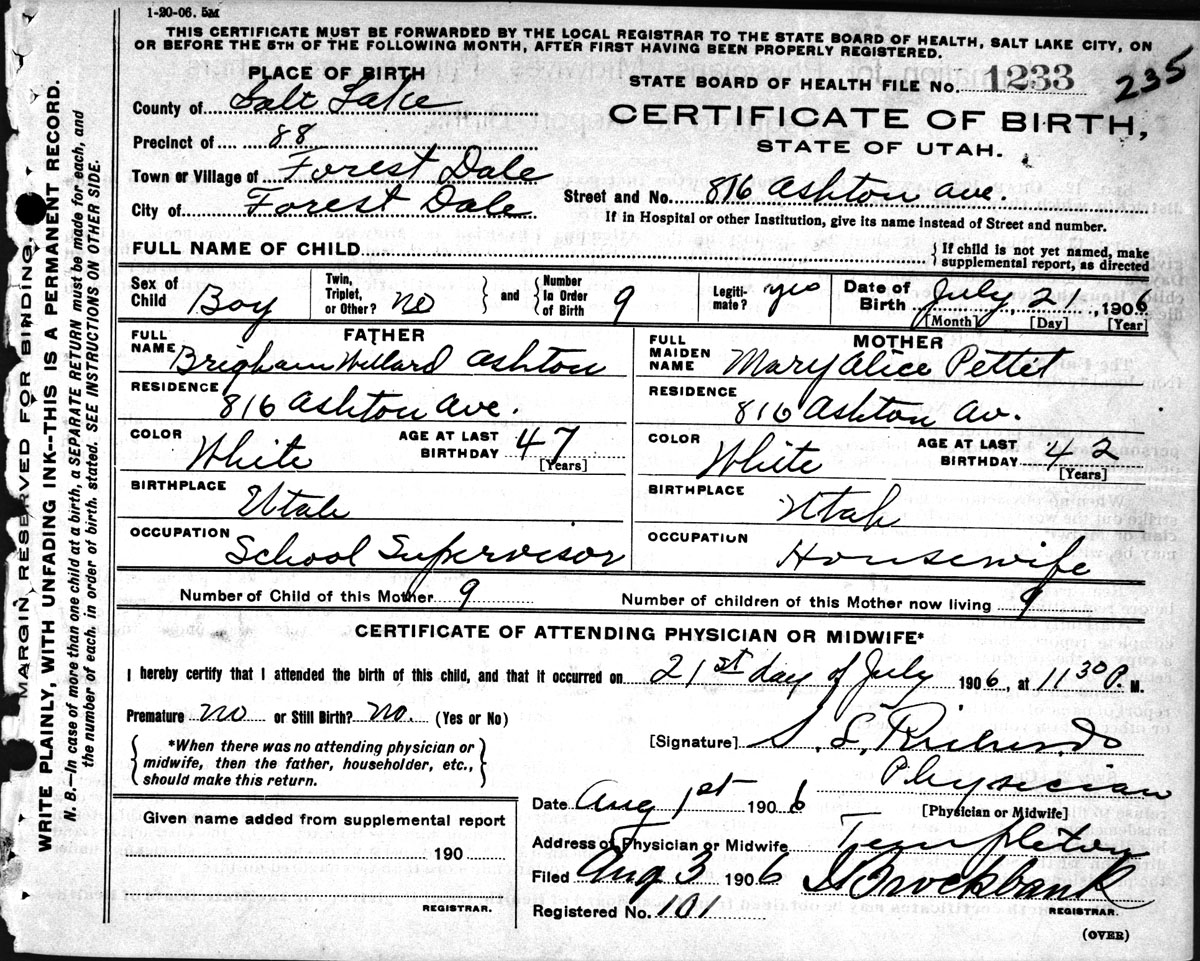 1-20-06. 5M
THIS CERTIFICATE MUST BE FORWARDED BY THE LOCAL REGISTRAR TO THE STATE BOARD OF HEALTH, SALT LAKE CITY, ON
OR BEFORE THE 5TH OF THE FOLLOWING MONTH, AFTER FIRST HAVING BEEN PROPERLY REGISTERED.
PLACE OF BIRTH
STATE BOARD OF HEALTH FILE NO. 1233 235
County of Salt Lake
CERTIFICATE OF BIRTH,
Precinct of 88
STATE OF UTAH.
Town or Village of Forest Dale
Street and No. 816 Ashton Ave.
City of Forest Dale
If in Hospital or other Institution, give its name instead of Street and number.
FULL NAME OF CHILD
If child is not yet named, make
supplemental report, as directed
Sex of Child Boy
Twin, Triplet, or Other? no
and
Number in Order of Birth 9
Legitimate? yes
Date of Birth July, 21, 1906
[Month] [Day] [Year]
FATHER
FULL NAME Brigham Willard Ashton
RESIDENCE 816 Ashton Ave.
COLOR White AGE AT LAST BIRTHDAY 47
[Years]
BIRTHPLACE Utah
OCCUPATION School Supervisor
MOTHER
FULL MAIDEN NAME Mary Alice Pettit
RESIDENCE 816 Ashton Av.
COLOR White AGE AT LAST BIRTHDAY 42
[Years]
BIRTHPLACE Utah
OCCUPATION Housewife
Number of Child of this Mother 9 Number of children of this Mother now living 9
CERTIFICATE OF ATTENDING PHYSICIAN OR MIDWIFE*
I hereby certify that I attended the birth of this child, and that it occurred on 21st day of July 1906, at 11 30 P. M.
Premature no or Still Birth? no. (Yes or No)
*When there was no attending physician or
midwife, then the father, householder, etc.,
should make this return.
[Signature] S. L. Richards
Physician
[Physician or Midwife]
Date Aug 1st 1906
Address of Physician or Midwife Templeton
Filed Aug 3 1906 Brockbank
REGISTRAR.
Registered No. 101
(OVER)
Given name added from supplemental report
190
REGISTRAR.
MARGIN RESERVED FOR BINDING.
WRITE PLAINLY, WITH UNFADING INK--THIS IS A PERMANENT RECORD.
N. B.—In case of more than one child at a birth, a SEPARATE RETURN must be made for each, and
the number of each, in order of birth, stated. SEE INSTRUCTIONS ON OTHER SIDE.